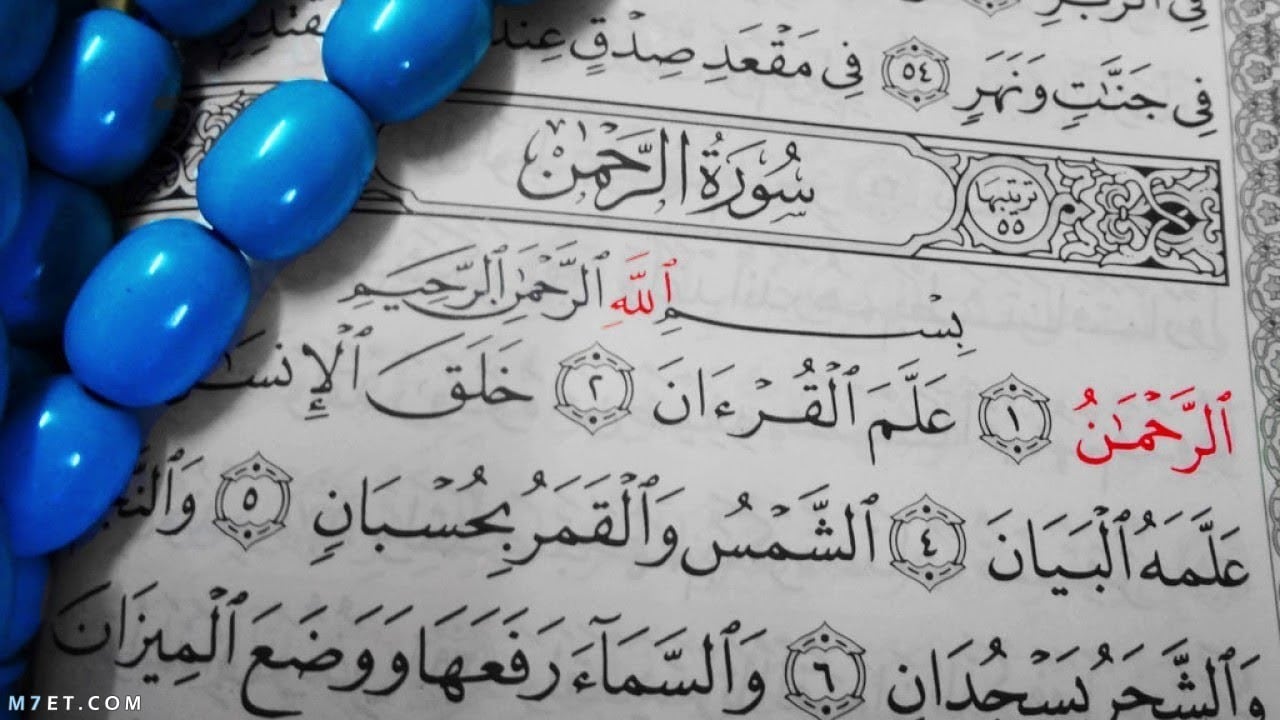 فِى جَنَّٰتٍ وَنَهَرٍ ٥٤ فِى مَقْعَدِ صِدْقٍ
سُورَةُ الرَّحْمٰن
ترتيبها
٥٥
بِسْمِ ٱللَّهِ ٱلرَّحْمَٰنِ ٱلرَّحِيمِ
ٱلرَّحْمَٰنُ ١ عَلَّمَ ٱلْقُرْءَانَ ٢ خَلَقَ
عَلَّمَهُ ٱلْبَيَانَ ٤ ٱلشَّمْسُ وَٱلْقَمَرُ بِحُسْبَانٍ ٥
وَٱلشَّجَرُ يَسْجُدَانِ ٦ وَٱلسَّمَآءَ رَفَعَهَا وَوَضَعَ ٱلْمِيزَانَ
M7ET.COM